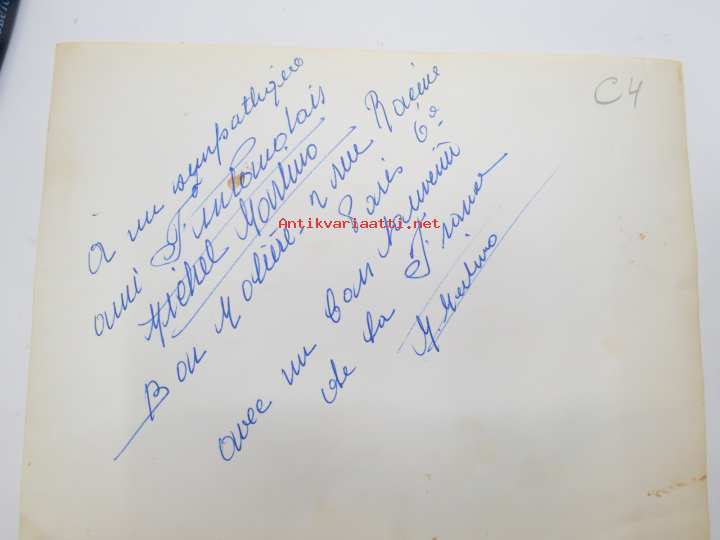 C4
à un sympathique
ami Finlandais
Michel Martino
Bar Molière - 2 rue Racine
Paris 6e
avec un bon souvenir
de la France
M Martino
Antikvariaatti.net